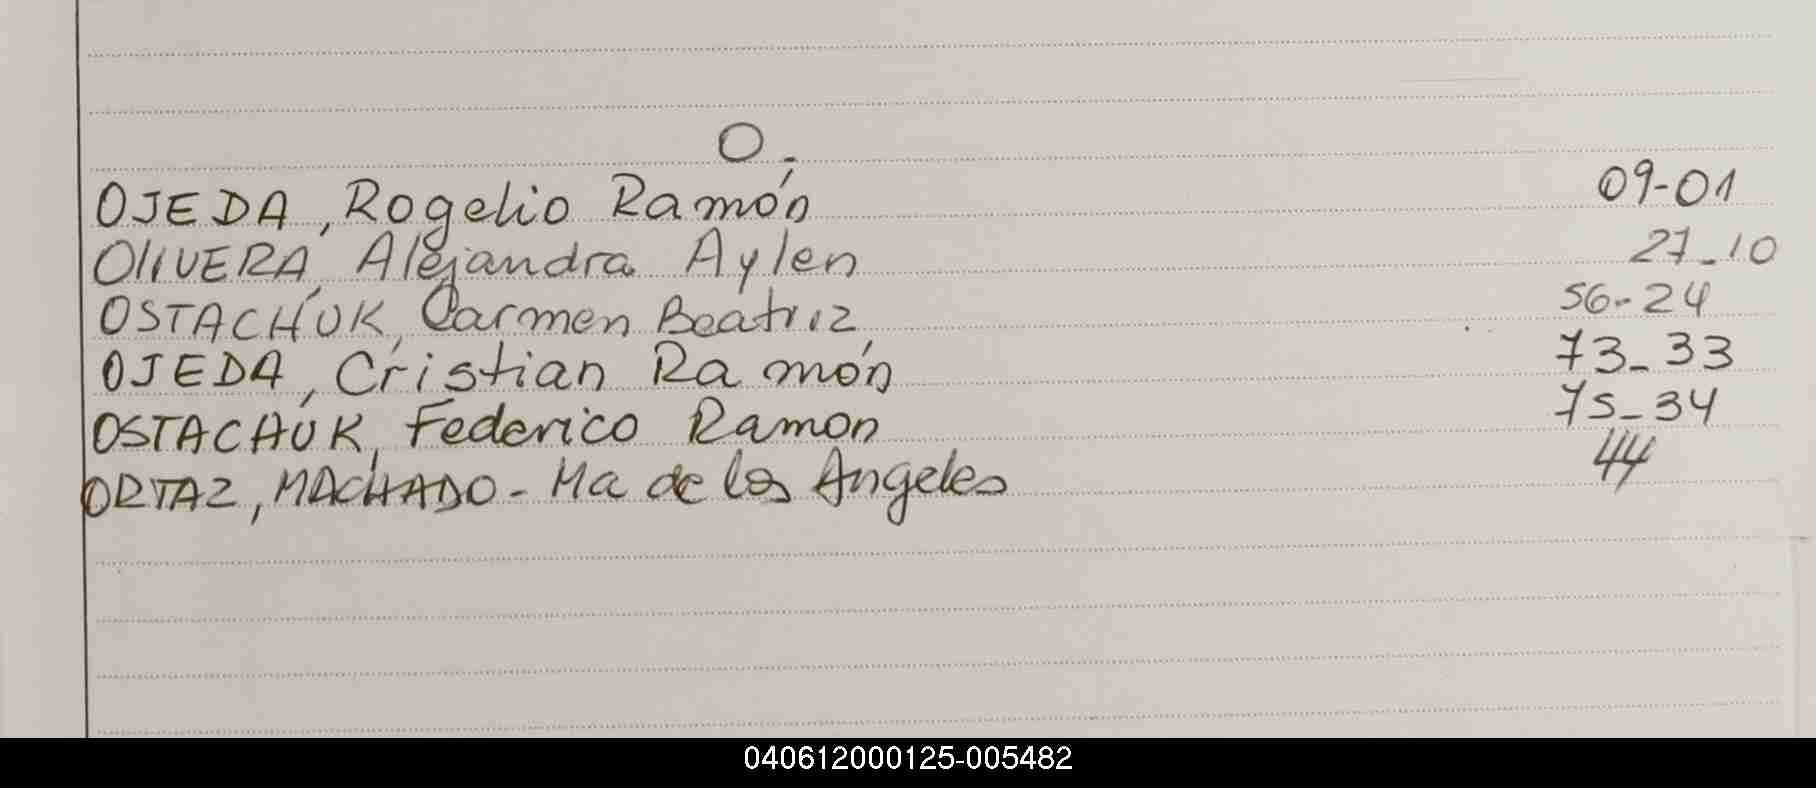 O.
OJEDA, Rogelio Ramón 09-01
OLIVERA, Alejandra Aylen 27-10
OSTACHUK, Carmen Beatriz 56-24
OJEDA, Cristian Ramón 73-33
OSTACHUK, Federico Ramon 75-34
ORTAZ, MACHADO - Ma de los Angeles 44
040612000125-005482